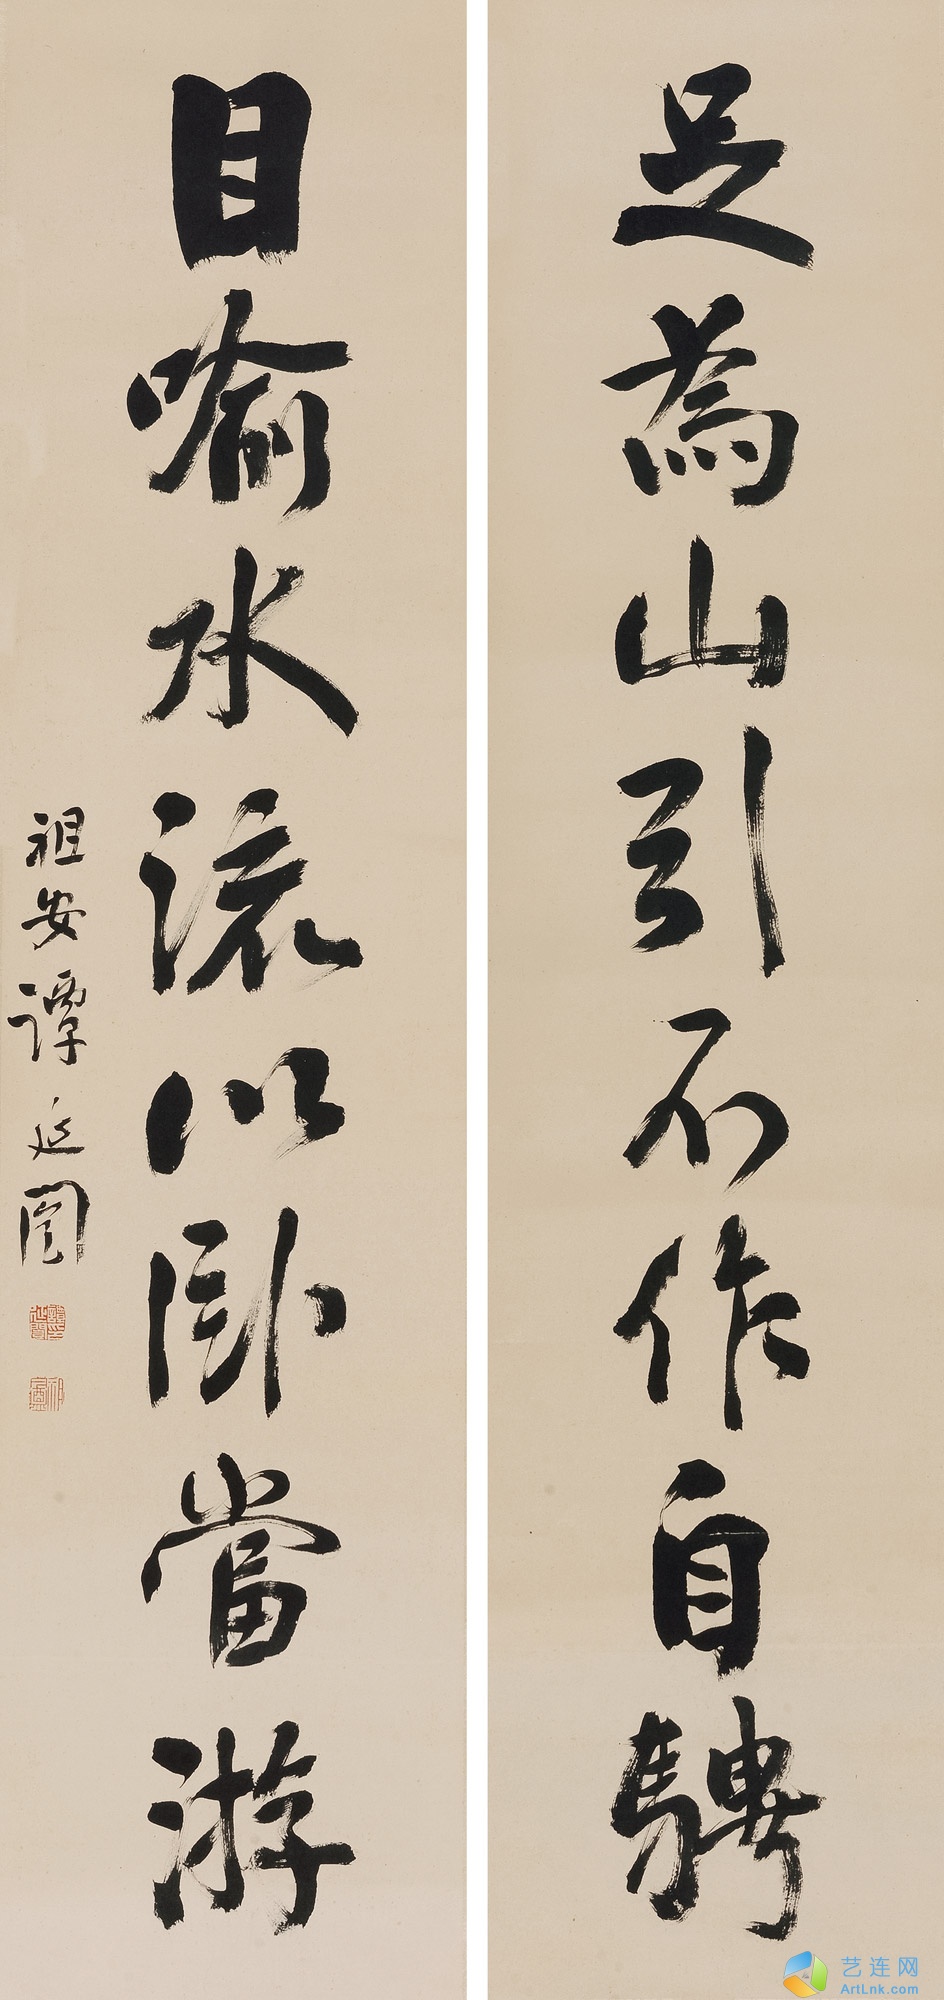 足為山引不作自騁
目喻水流以卧當游
祖安譚延闓
譚延闓印
艺连网
ArtLnk.com